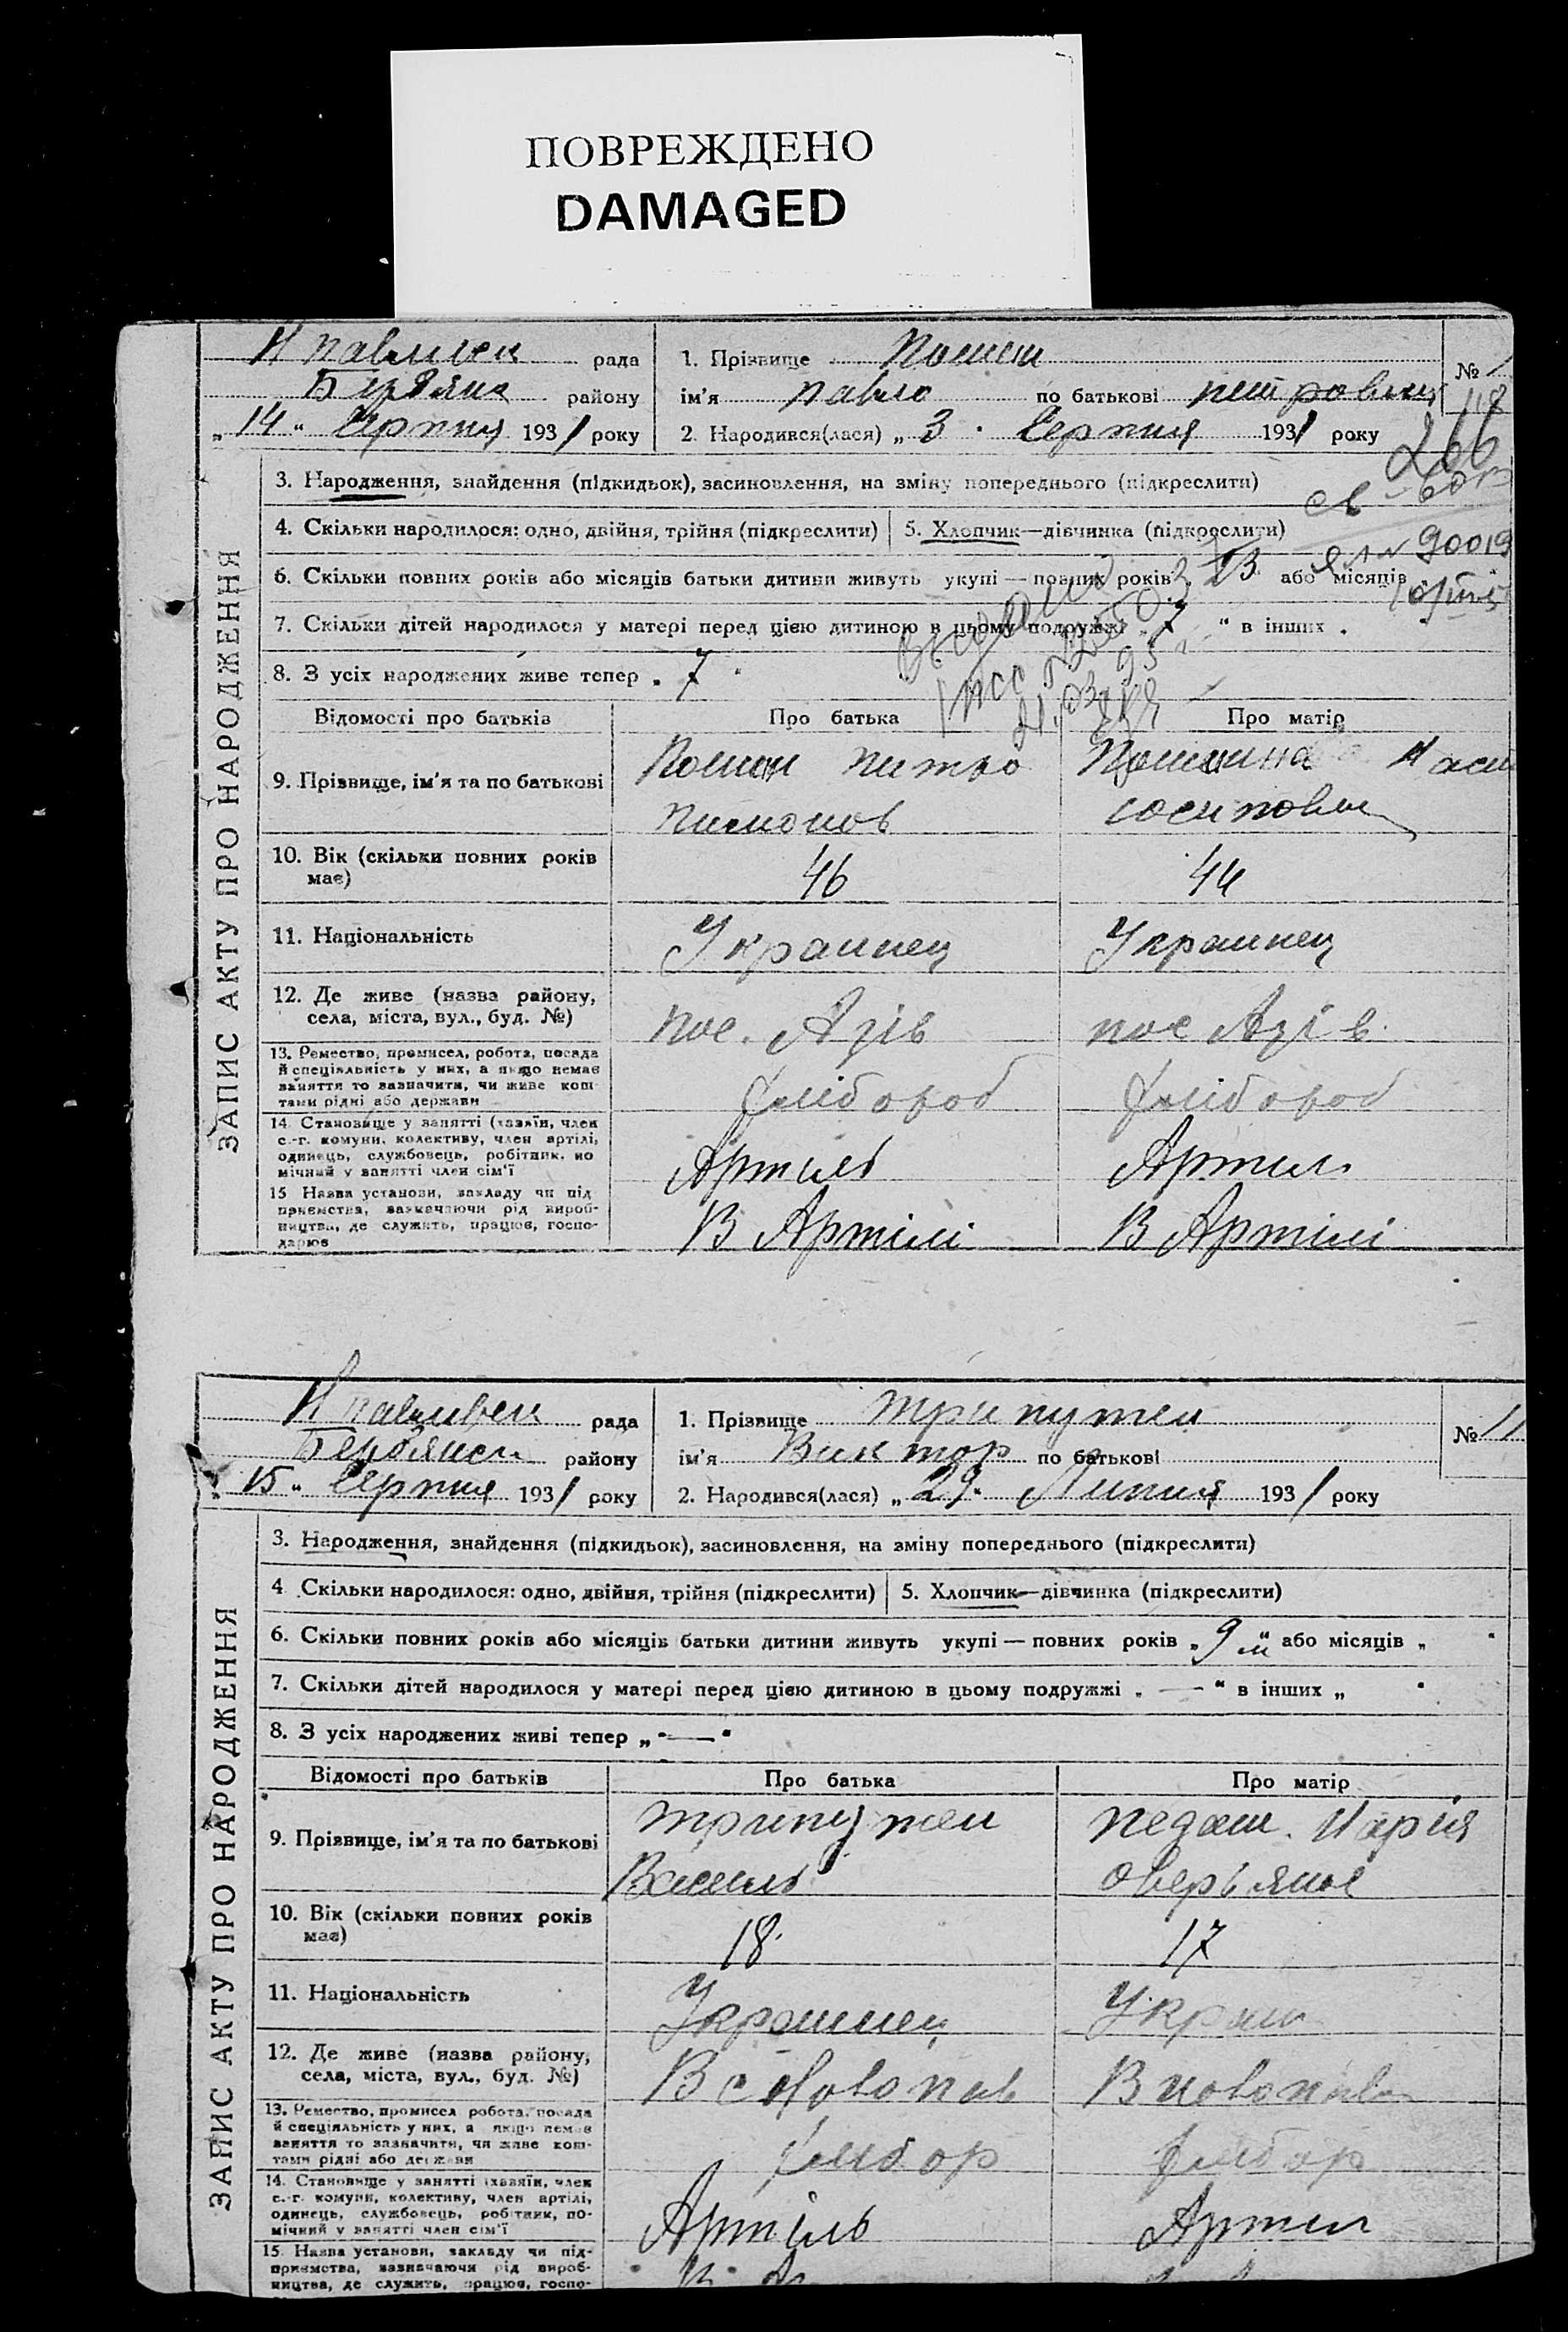 ПОВРЕЖДЕНО
DAMAGED
ЗАПИС АКТУ ПРО НАРОДЖЕННЯ
рада
района району
„14“ Серпня 1931 року
1. Прізвище
№
ім'я Павло по батькові Петрович
2. Народився(лася) „3“ Серпня 1931 року
266
3. Народження, знайдення (підкидьок), засиновлення, на зміну попереднього (підкреслити)
4. Скільки народилося: одно, двійня, трійня (підкреслити) 5. Хлопчик—дівчинка (підкреслити)
90019
6. Скільки повних років або місяців батьки дитини живуть укупі — повних років або місяців
7. Скільки дітей народилося у матері перед цією дитиною в цьому подружжі „7“ в інших
8. З усіх народжених живе тепер „7“
Відомості про батьків Про батька Про матір
9. Прізвище, ім'я та по батькові
10. Вік (скільки повних років має) 46 44
11. Національність Украинец Украинец
12. Де живе (назва району, села, міста, вул., буд. №) пос. Азів пос Азів
13. Ремество, промисел, робота, посада й спеціяльність у них, а якщо немає заняття то зазначити, чи живе коштами рідні або держави Хлібороб Хлібороб
14. Становище у занятті (хазяїн, член с.-г. комуни, колективу, член артілі, одинець, службовець, робітник, помічний у занятті член сім'ї Артиль Артил
15. Назва установи, закладу чи підприємства, зазначаючи рід виробництва, де служить, працює, господарює В Артілі В Артілі
ЗАПИС АКТУ ПРО НАРОДЖЕННЯ
рада
Бердянськ району
„15“ Серпня 1931 року
1. Прізвище Трипутен
№ 11
ім'я Виктор по батькові
2. Народився(лася) „29“ Липня 1931 року
3. Народження, знайдення (підкидьок), засиновлення, на зміну попереднього (підкреслити)
4 Скільки народилося: одно, двійня, трійня (підкреслити) 5. Хлопчик—дівчинка (підкреслити)
6. Скільки повних років або місяців батьки дитини живуть укупі — повних років „9 м“ або місяців „ “
7. Скільки дітей народилося у матері перед цією дитиною в цьому подружжі „—“ в інших „ “
8. З усіх народжених живі тепер „—“
Відомості про батьків Про батька Про матір
9. Прізвище, ім'я та по батькові Трипутен Василь Марія
10. Вік (скільки повних років має) 18 17
11. Національність Украинец Украин
12. Де живе (назва району, села, міста, вул., буд. №)
13. Ремество, промисел робота, посада й спеціяльність у них, а якщо немає заняття то зазначити, чи живе коштами рідні або держави Хлібор Хлібор
14. Становище у занятті (хазяїн, член с.-г. комуни, колективу, член артілі, одинець, службовець, робітник, помічний у занятті член сім'ї Артіль Артил
15. Назва установи, закладу чи підприємства, зазначаючи рід виробництва, де служить, працює, госпо-